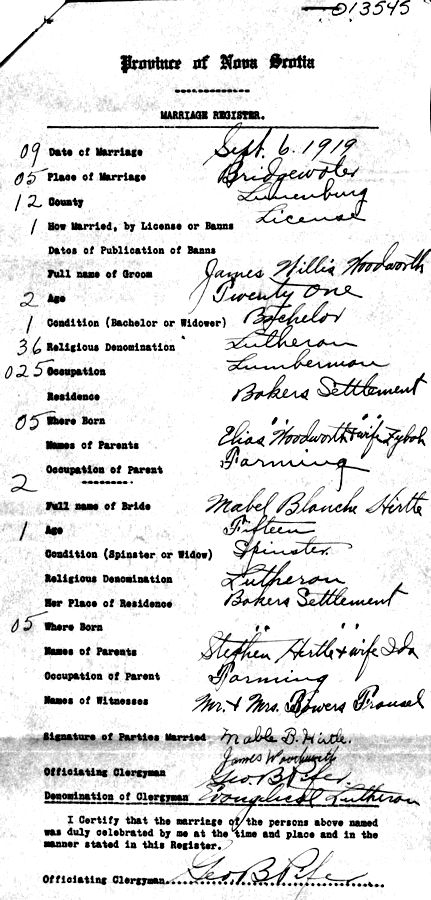 013545
Province of Nova Scotia
MARRIAGE REGISTER.
09 Date of Marriage Sept. 6. 1919
05 Place of Marriage Bridgewater
12 County Lunenburg
1 How Married, by License or Banns License
Dates of Publication of Banns
Full name of Groom James Willis Woodworth
2 Age Twenty One
1 Condition (Bachelor or Widower) Bachelor
36 Religious Denomination Lutheran
025 Occupation Lumberman
Residence Bakers Settlement
05 Where Born " "
Names of Parents Elias Woodworth & wife
Occupation of Parent Farming
2
Full name of Bride Mabel Blanche Hirtle
1 Age Fifteen
Condition (Spinster or Widow) Spinster
Religious Denomination Lutheran
Her Place of Residence Bakers Settlement
05 Where Born " "
Names of Parents Stephen Hirtle & wife Ida
Occupation of Parent Farming
Names of Witnesses Mr. & Mrs. Bowers
Signature of Parties Married Mable B. Hirtle.
James Woodworth
Officiating Clergyman Geo. B Pifer.
Denomination of Clergyman Evangelical Lutheran
I Certify that the marriage of the persons above named
was duly celebrated by me at the time and place and in the
manner stated in this Register.
Officiating Clergyman Geo B Pifer